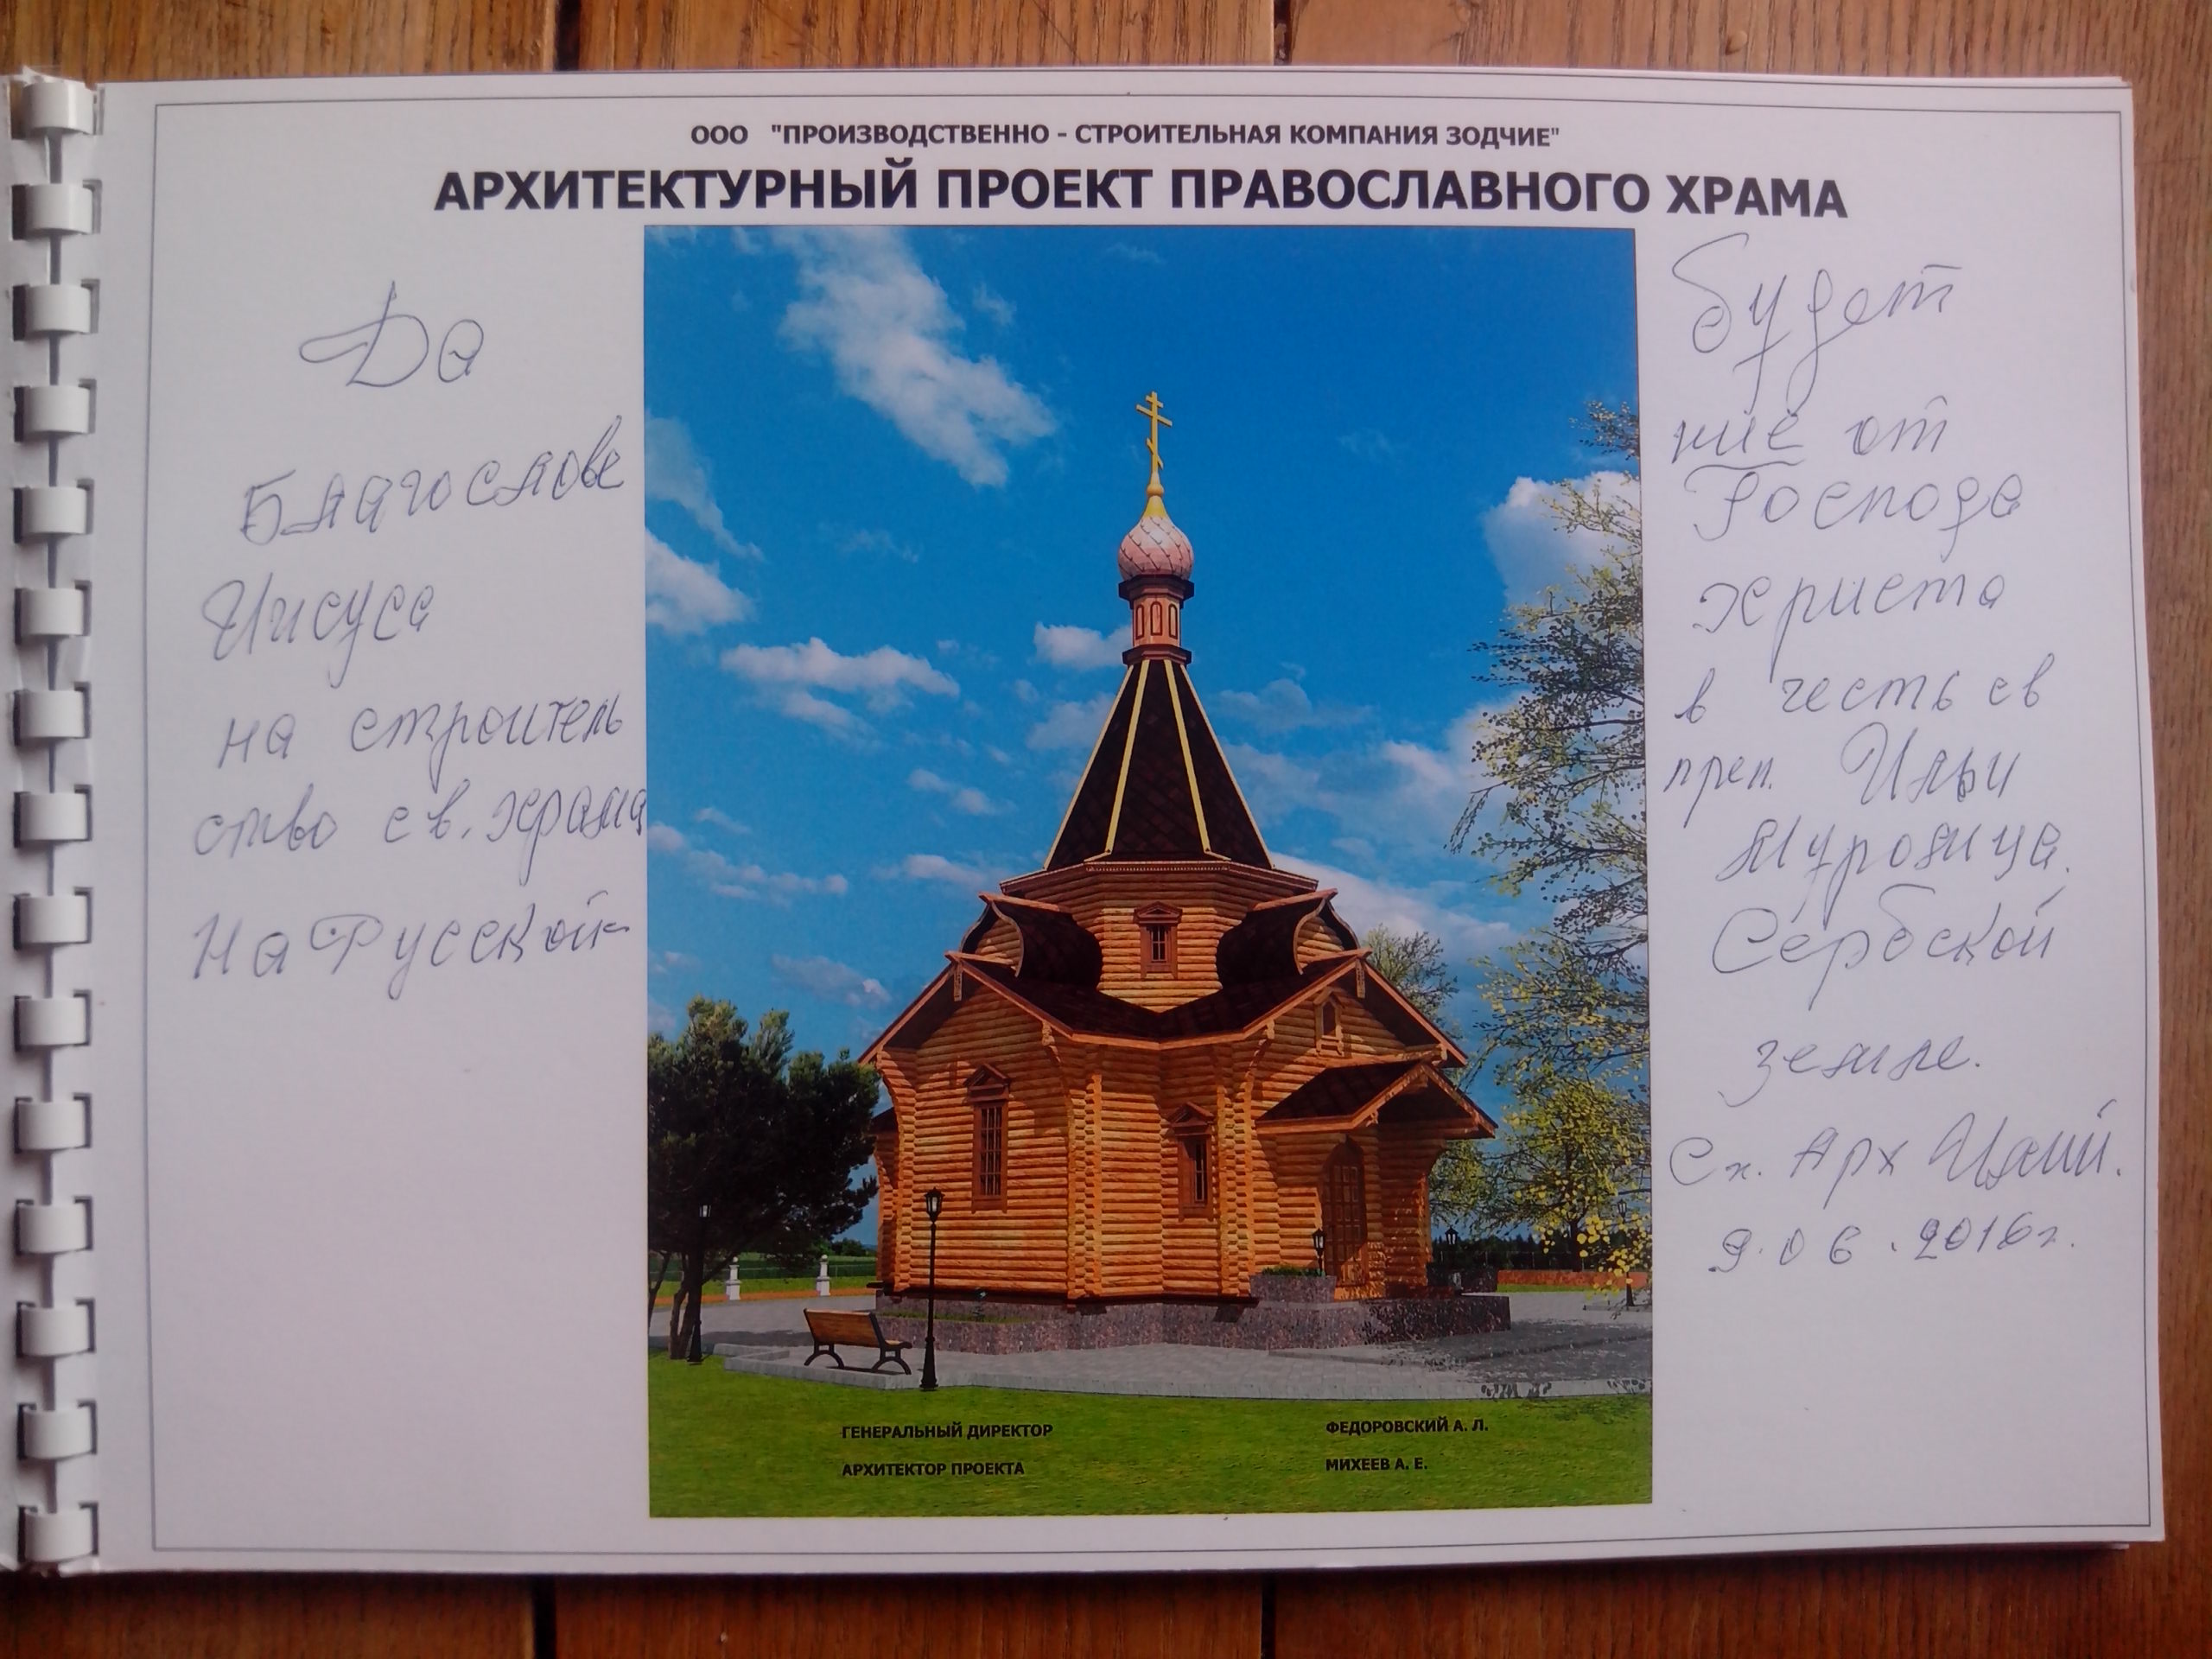 ООО "ПРОИЗВОДСТВЕННО - СТРОИТЕЛЬНАЯ КОМПАНИЯ ЗОДЧИЕ"
АРХИТЕКТУРНЫЙ ПРОЕКТ ПРАВОСЛАВНОГО ХРАМА
Да
Благослове
Иисуса
на строитель
ство св. храма
На Русской-
будет
ние от
Господа
Христа
в честь св
преп. Ильи
Муромца.
Сербской
земле.
Сх. Арх Илий.
9.06.2016г.
ГЕНЕРАЛЬНЫЙ ДИРЕКТОР ФЕДОРОВСКИЙ А. Л.
АРХИТЕКТОР ПРОЕКТА МИХЕЕВ А. Е.